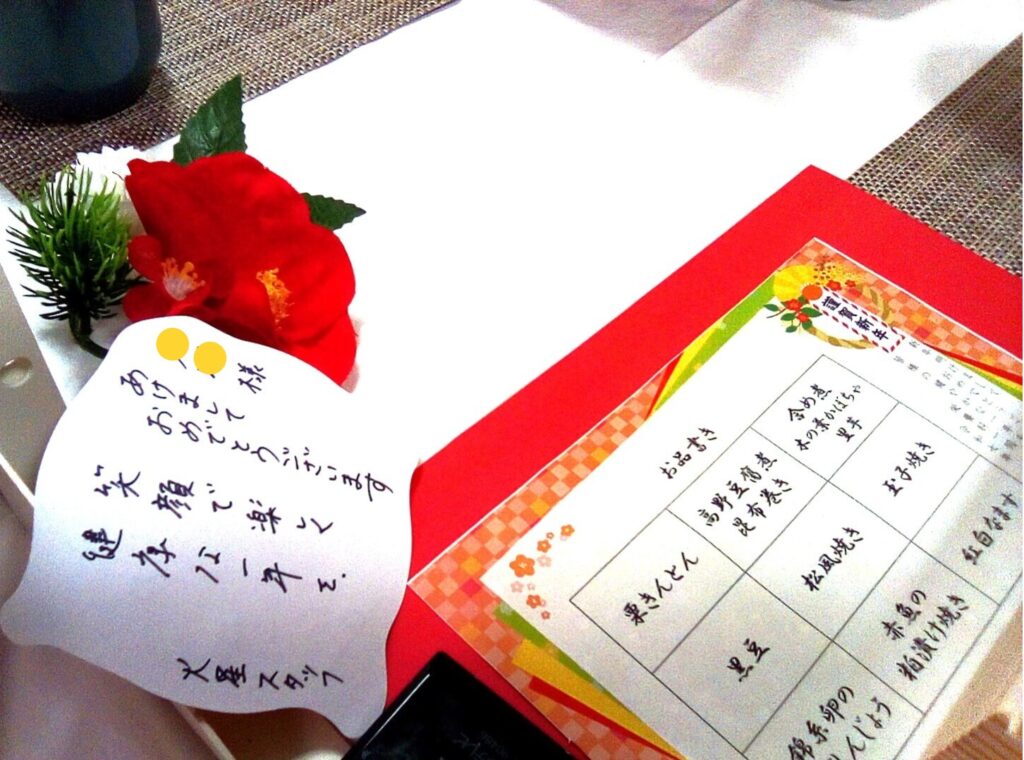 様
あけまして
おめでとうございます
笑顔で楽しく
健康な一年を.
火星スタッフ
謹賀新年
お品書き
含め煮
木の葉かぼちゃ
里芋
玉子焼き
紅白なます
高野豆腐煮
昆布巻き
松風焼き
赤魚の
粕漬け焼き
栗きんとん
黒豆
錦糸卵の
んじょう